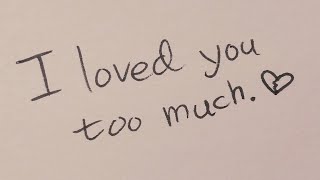 I loved you
too much.